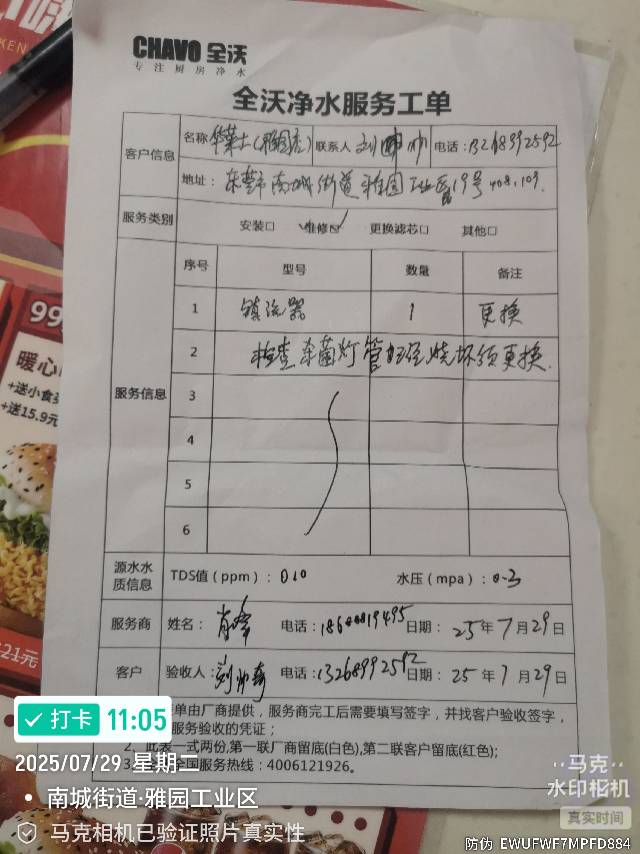 CHAVO 全沃
专注厨房净水
全沃净水服务工单
客户信息
名称 华莱士(雅园店) 联系人 刘 电话:13268992592
地址: 东莞市南城街道雅园工业区19号408.109.
服务类别 安装□ 维修☑ 更换滤芯□ 其他□
服务信息
序号 型号 数量 备注
1 镇流器 1 更换
2 检查杀菌灯管已经烧坏须更换.
3
4
5
6
源水水质信息 TDS值(ppm): 010 水压(mpa): 0.3
服务商 姓名: 肖峰 电话: 日期: 25年7月29日
客户 验收人: 电话:13268992592 日期: 25年7月29日
单由厂商提供,服务商完工后需要填写签字,并找客户验收签字,
服务验收的凭证;
2、此表一式两份,第一联厂商留底(白色),第二联客户留底(红色);
3、全国服务热线:4006121926。
打卡 11:05
2025/07/29 星期二
南城街道·雅园工业区
马克相机已验证照片真实性
马克
水印相机
真实时间
防伪 EWUFWF7MPFD884
99
暖心
+送小食
+送15.9元
21元